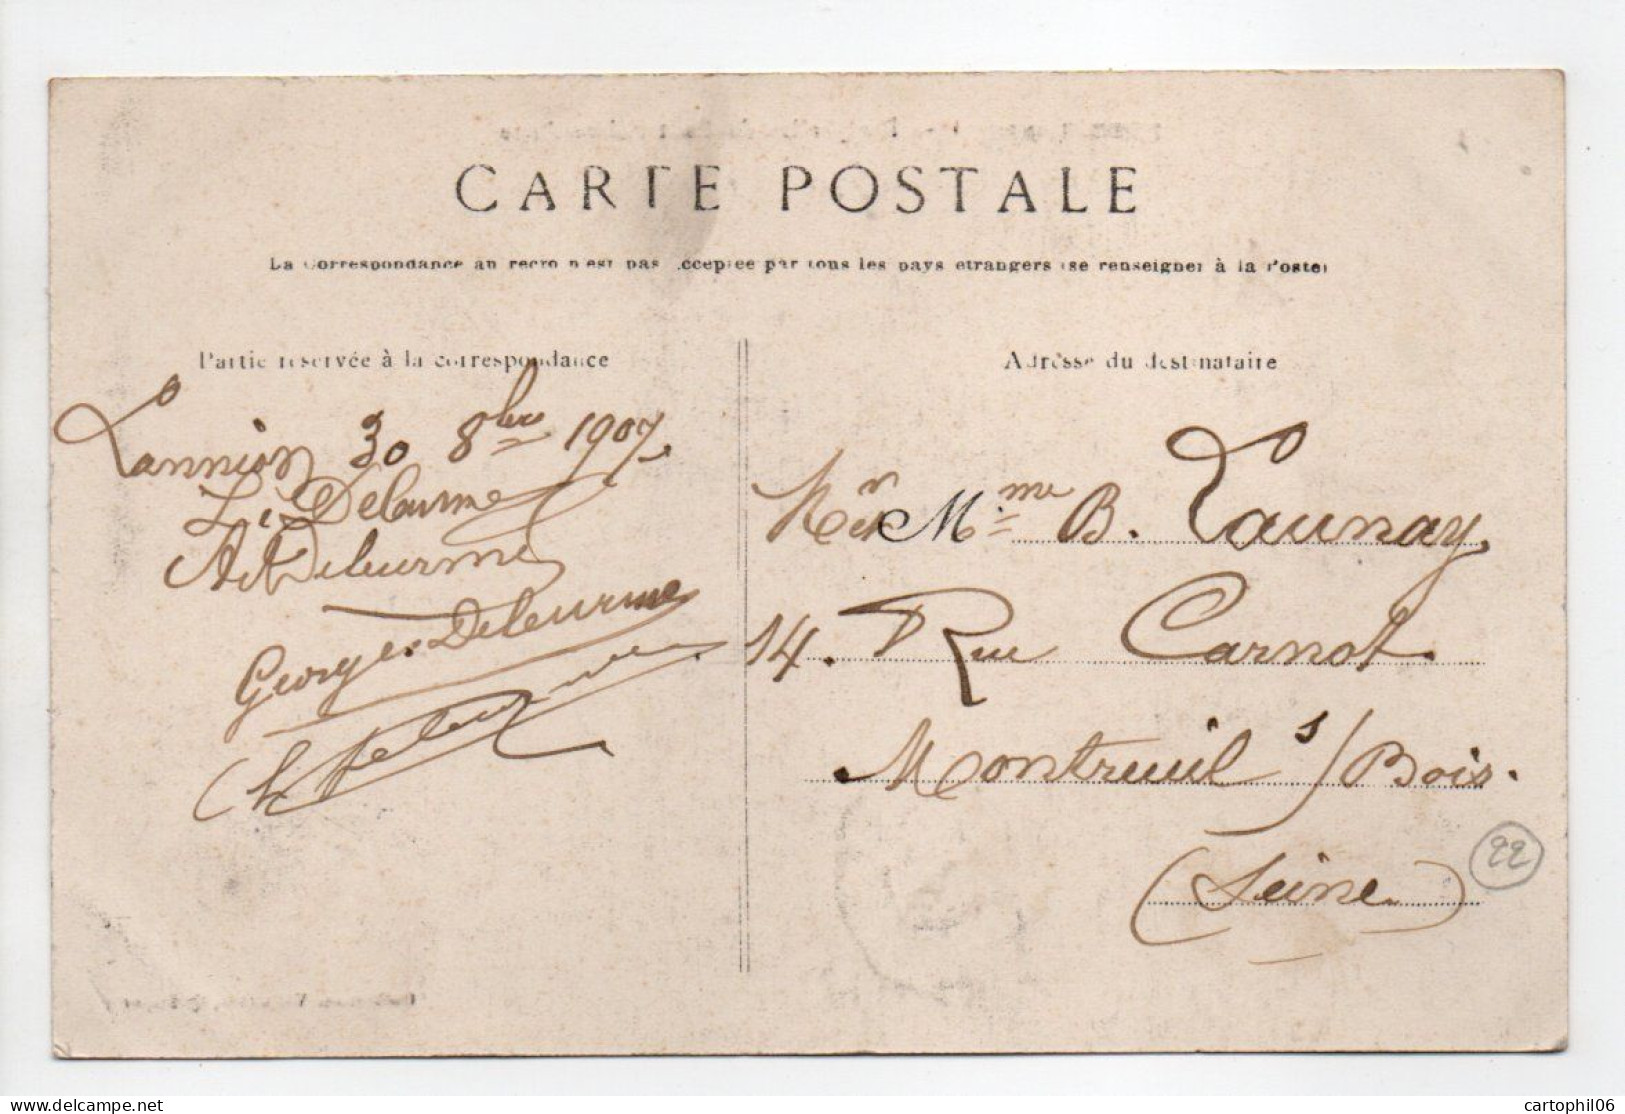 CARTE POSTALE
La Correspondance au recto n'est pas acceptée par tous les pays étrangers (se renseigner à la Poste)
Partie réservée à la correspondance
Lannion 30 8bre 1907.
L. Delaurme
A Deleurme
Georges Deleurme
Adresse du destinataire
M.me B. Launay
14. Rue Carnot.
Montreuil s/Bois.
(Seine)
22
cartophil06